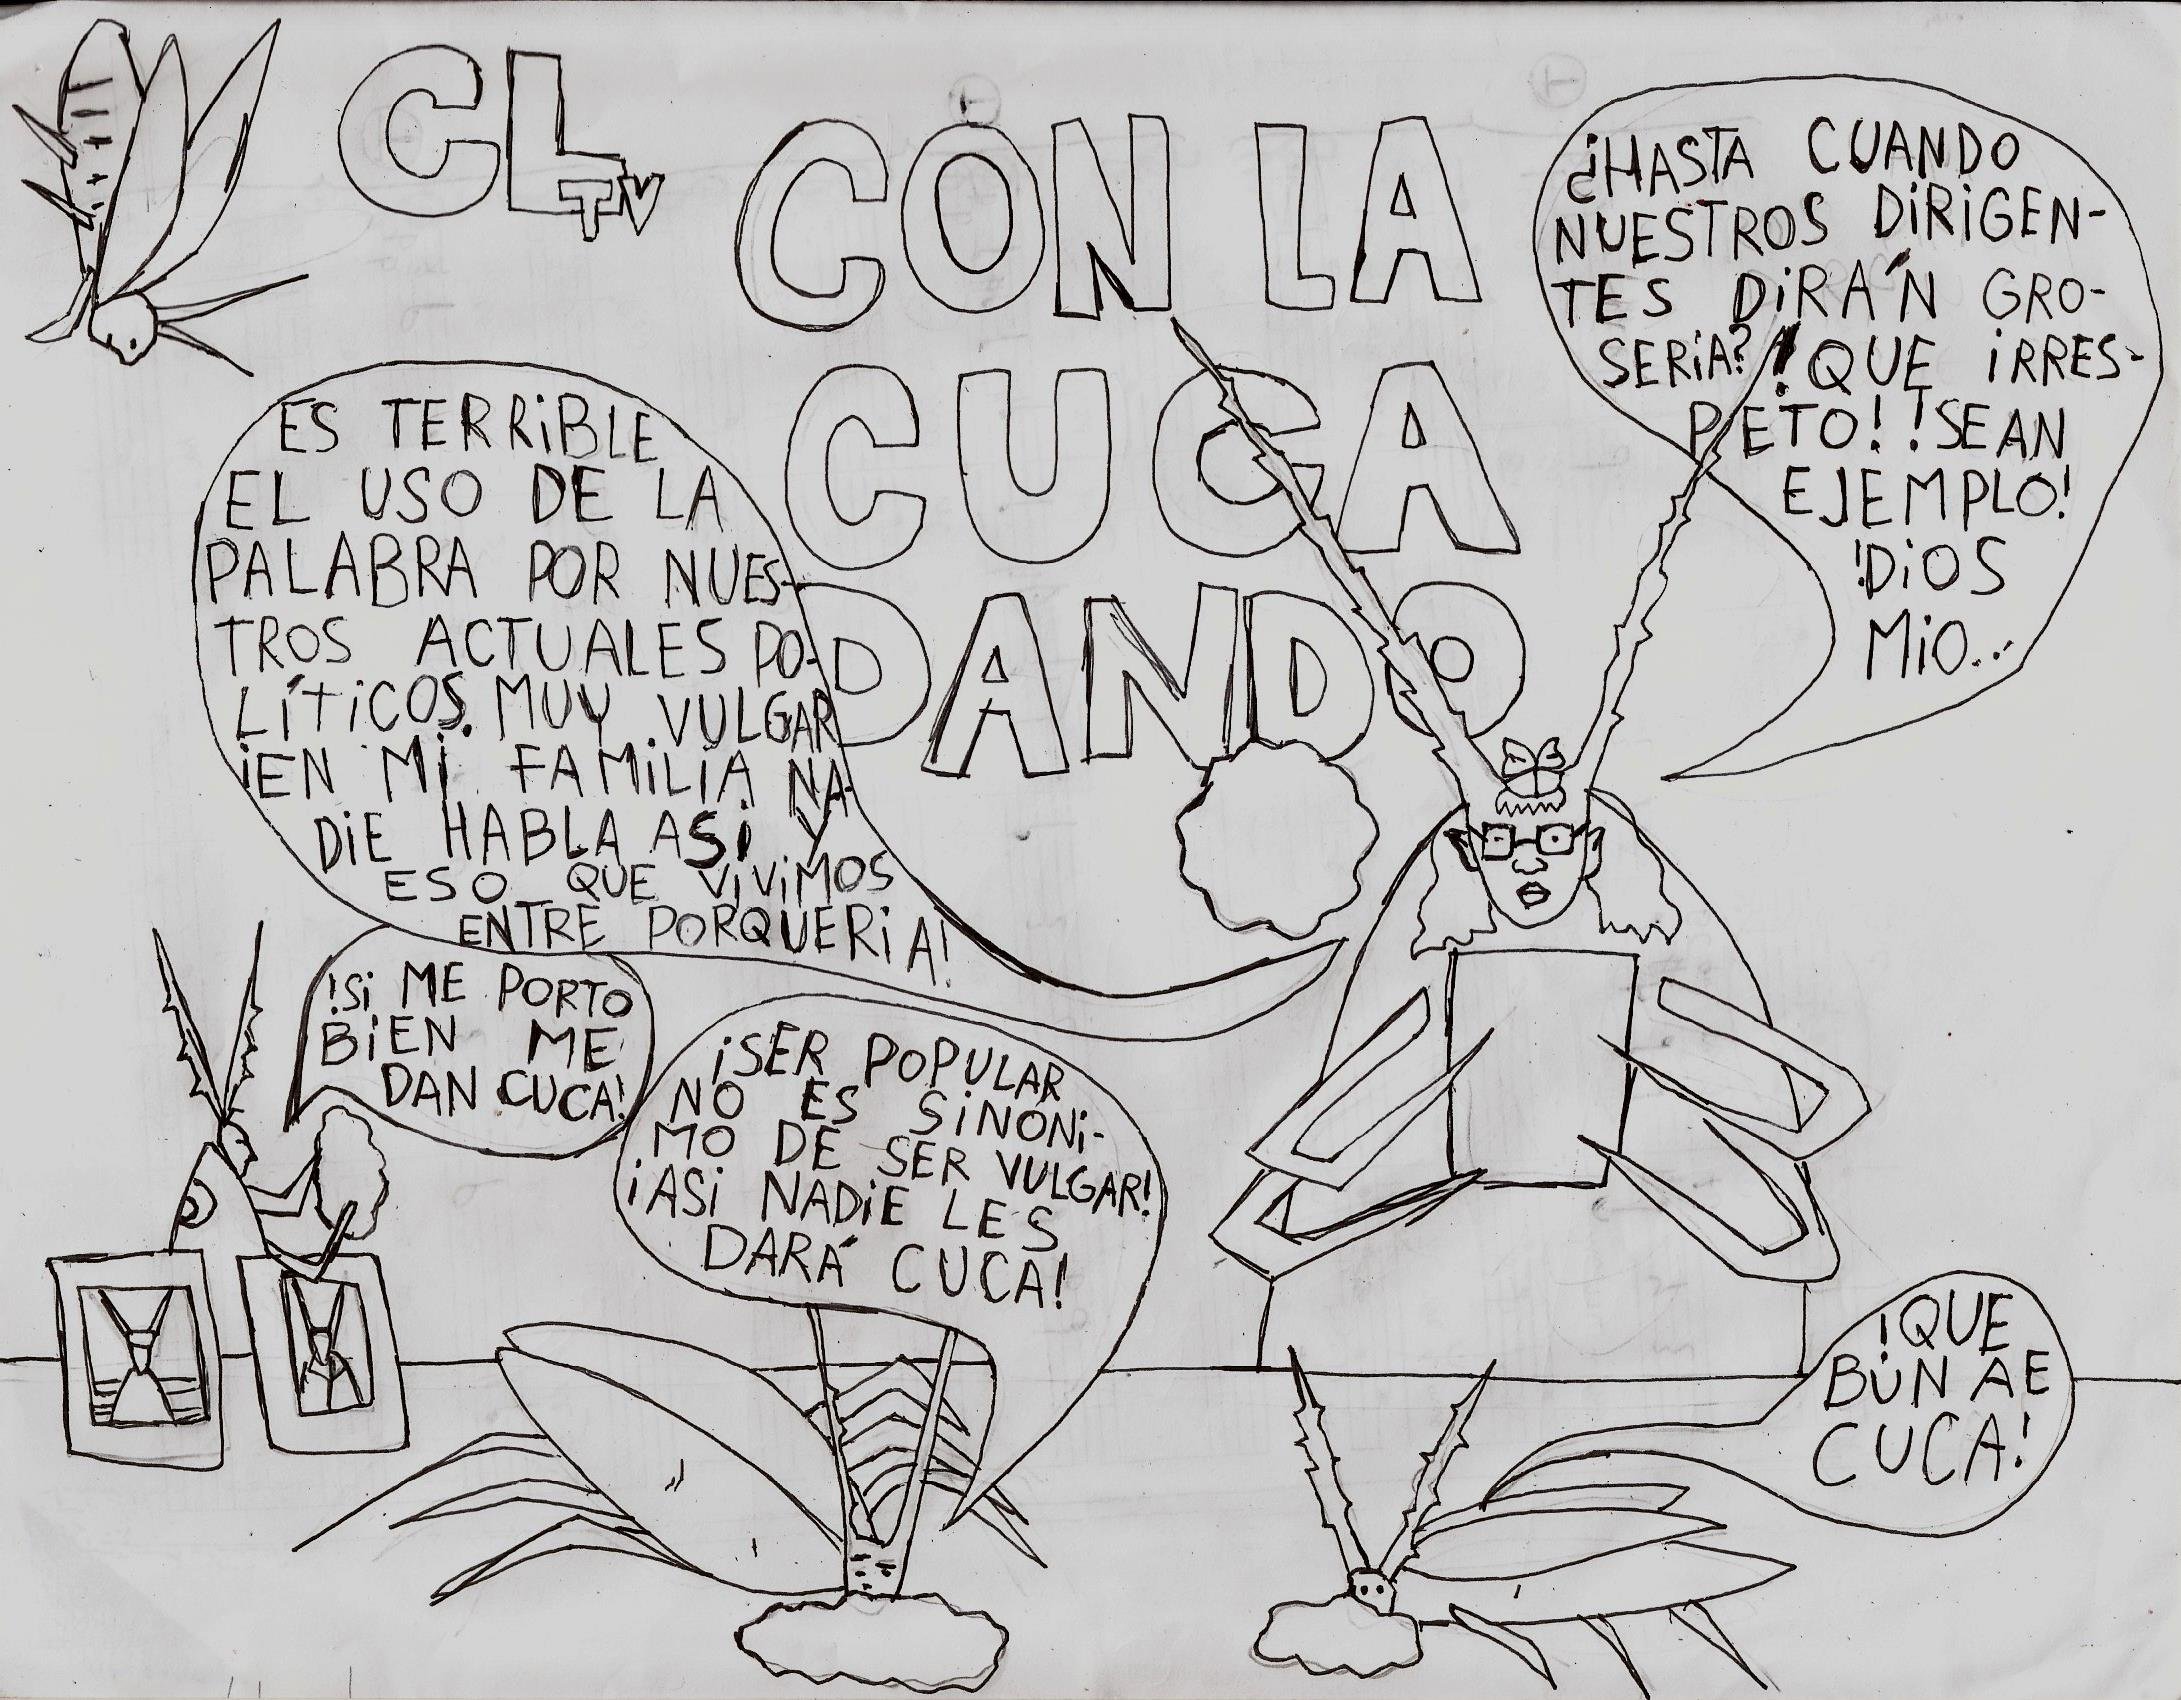 CLTV
CON LA
CUCA
DANDO
¿HASTA CUANDO
NUESTROS DIRIGEN-
TES DIRÁN GRO-
SERIA? !QUE IRRES-
PETO! !SEAN
EJEMPLO!
!DIOS
MIO...
ES TERRIBLE
EL USO DE LA
PALABRA POR NUES-
TROS ACTUALES PO-
LÍTICOS. MUY VULGAR
¡EN MI FAMILIA NA-
DIE HABLA ASI Y
ESO QUE VIVIMOS
ENTRE PORQUERIA!
!SI ME PORTO
BIEN ME
DAN CUCA!
¡SER POPULAR
NO ES SINÓNI-
MO DE SER VULGAR!
¡ASI NADIE LES
DARÁ CUCA!
!QUE
BUN AE
CUCA!